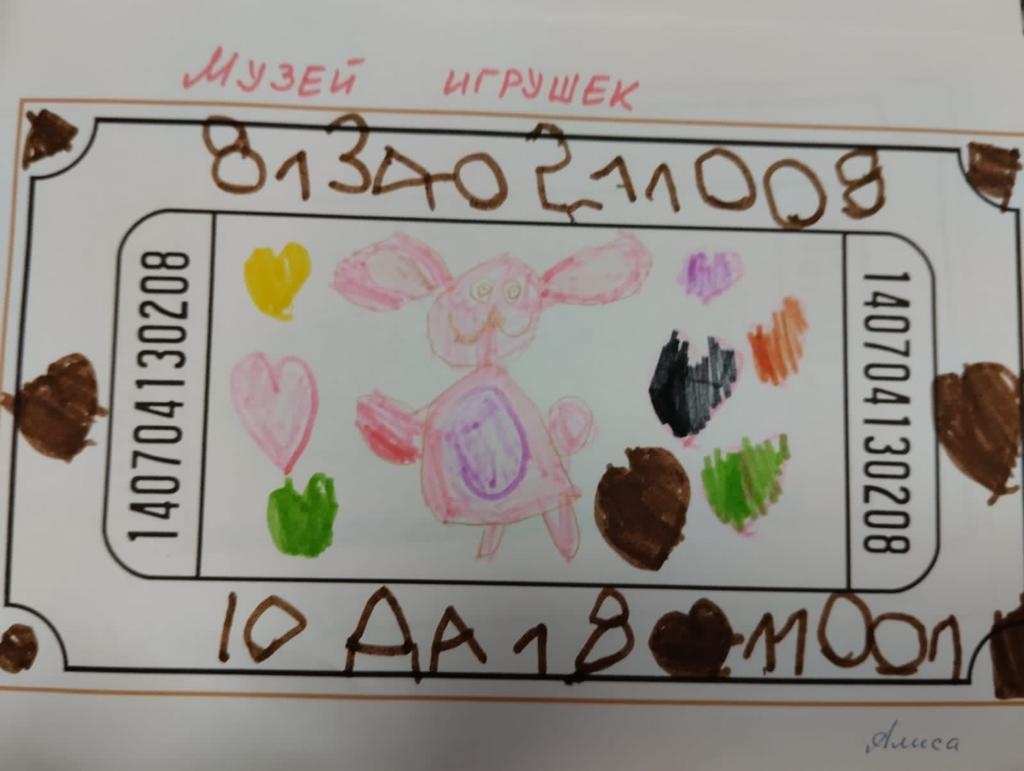 МУЗЕЙ ИГРУШЕК
81340211008
14070413020​8
14070413020​8
10 ДА18 11001
Алиса